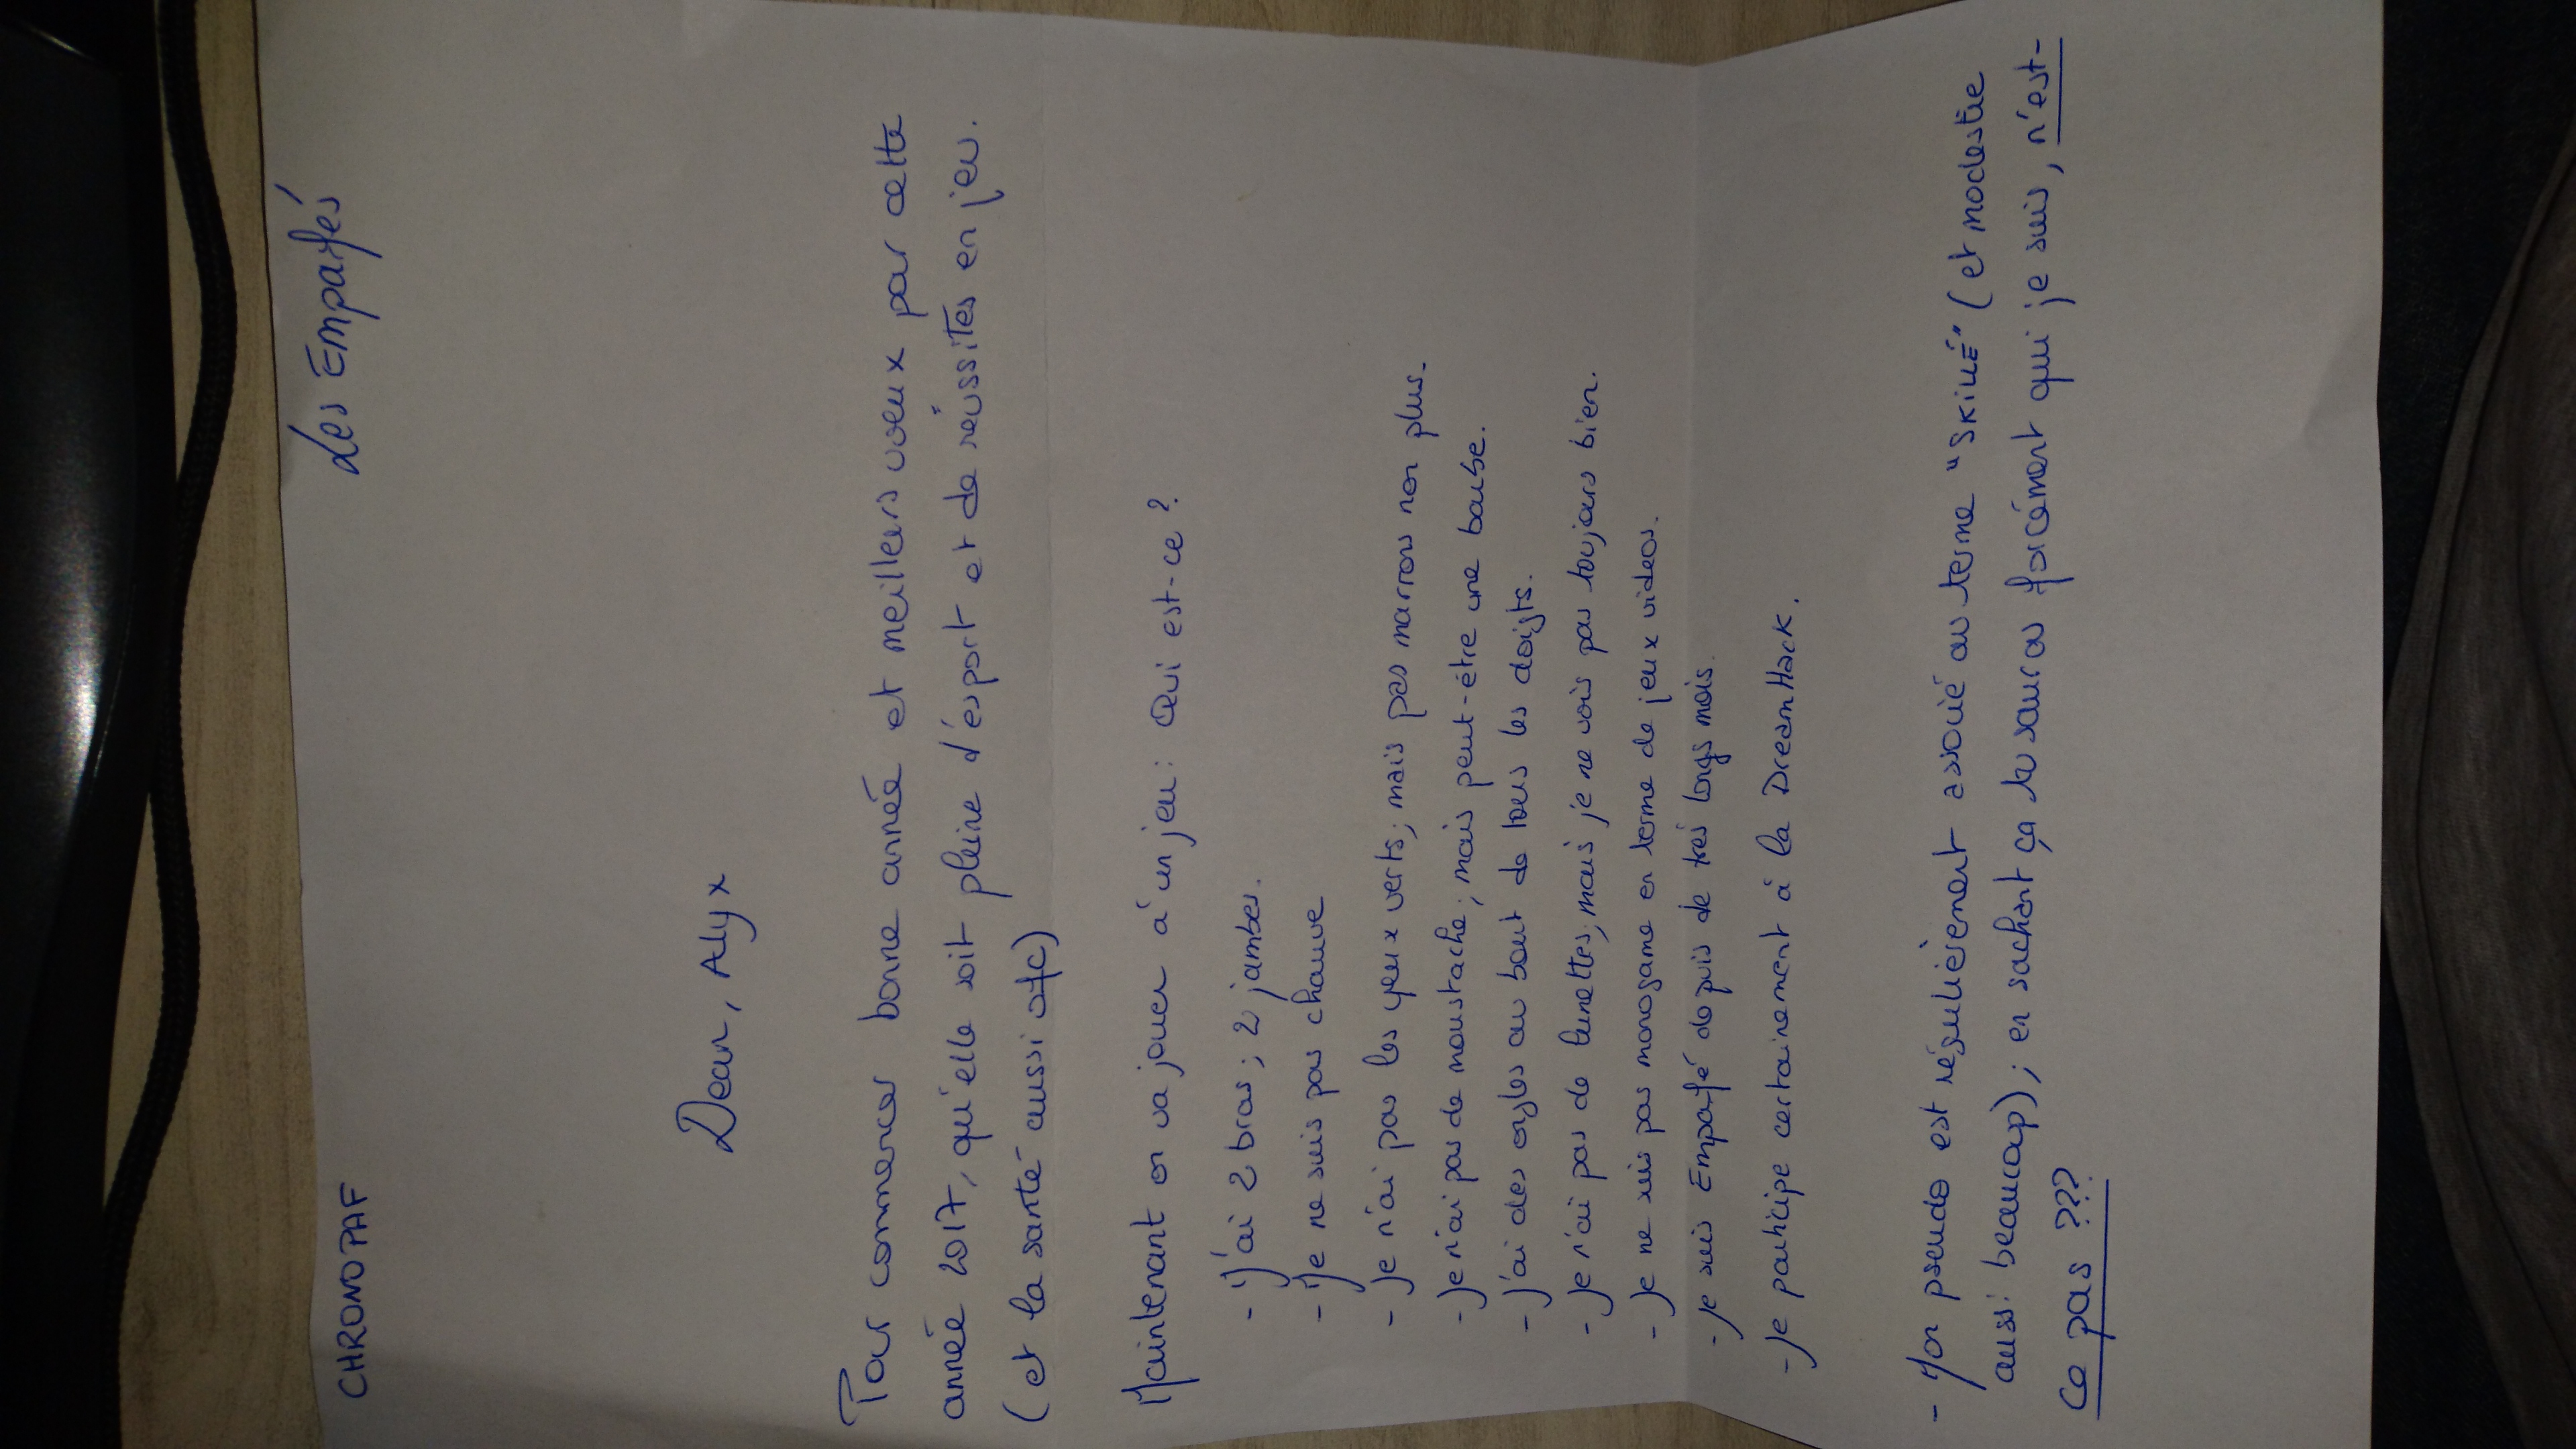 CHRONOPAF
Les Empafés
Dear, Alyx
Pour commencer bonne année et meilleurs voeux pour cette
année 2017, qu'elle soit pleine d'esport et de réussites en jeu.
(et la santé aussi ofc)
Maintenant on va jouer à un jeu : Qui est-ce ?
- J'ai 2 bras ; 2 jambes.
- Je ne suis pas chauve
- Je n'ai pas les yeux verts ; mais pas marrons non plus.
- Je n'ai pas de moustache ; mais peut-être une barbe.
- J'ai des ongles au bout de tous les doigts.
- Je n'ai pas de lunettes, mais je ne vois pas toujours bien.
- Je ne suis pas monogame en terme de jeux videos.
- Je suis Empafé depuis de très longs mois.
- Je participe certainement à la DreamHack.
- Mon pseudo est régulièrement associé au terme "SKILLÉ" (et modestie
aussi beaucoup) ; en sachant ça tu sauras forcément qui je suis, n'est-
ce pas ???